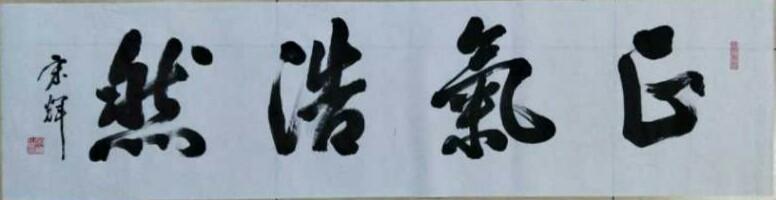 正氣浩然
宗輝